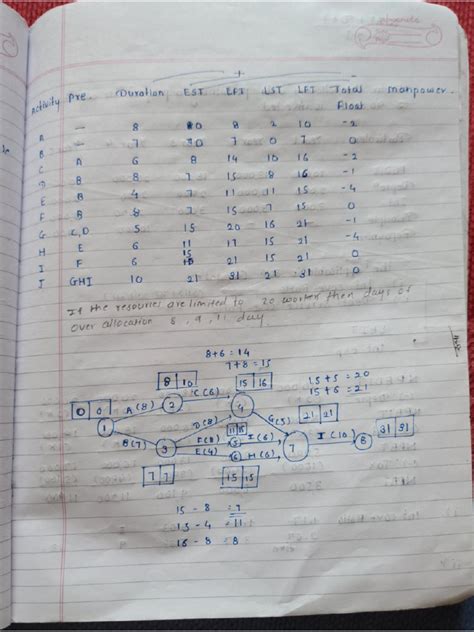 Activity Pre. Duration EST EFT LST LFT Total Float manpower
A - 8 0 8 2 10 -2
B - 7 0 7 0 7 0
C A 6 8 14 10 16 -2
D B 8 7 15 8 16 -1
E B 4 7 11 11 15 -4
F B 8 7 15 7 15 0
G C,D 5 15 20 16 21 -1
H E 6 11 17 15 21 -4
I F 6 15 21 15 21 0
J GHI 10 21 31 21 31 0
If the resources are limited to 20 worker then days of
over allocation 8, 9, 11 day
8+6 = 14
7+8 = 15
15+5 = 20
15+6 = 21
8 10
C(6)
15 16
0 0
A(8)
2
4
G(5)
21 21
1
D(8)
11 15
I(10)
31 31
B(7)
3
F(8)
5
I(6)
7
8
E(4)
6
H(6)
7 7
15 15
15 - 8 = 7
15 - 4 = 11
16 - 8 8